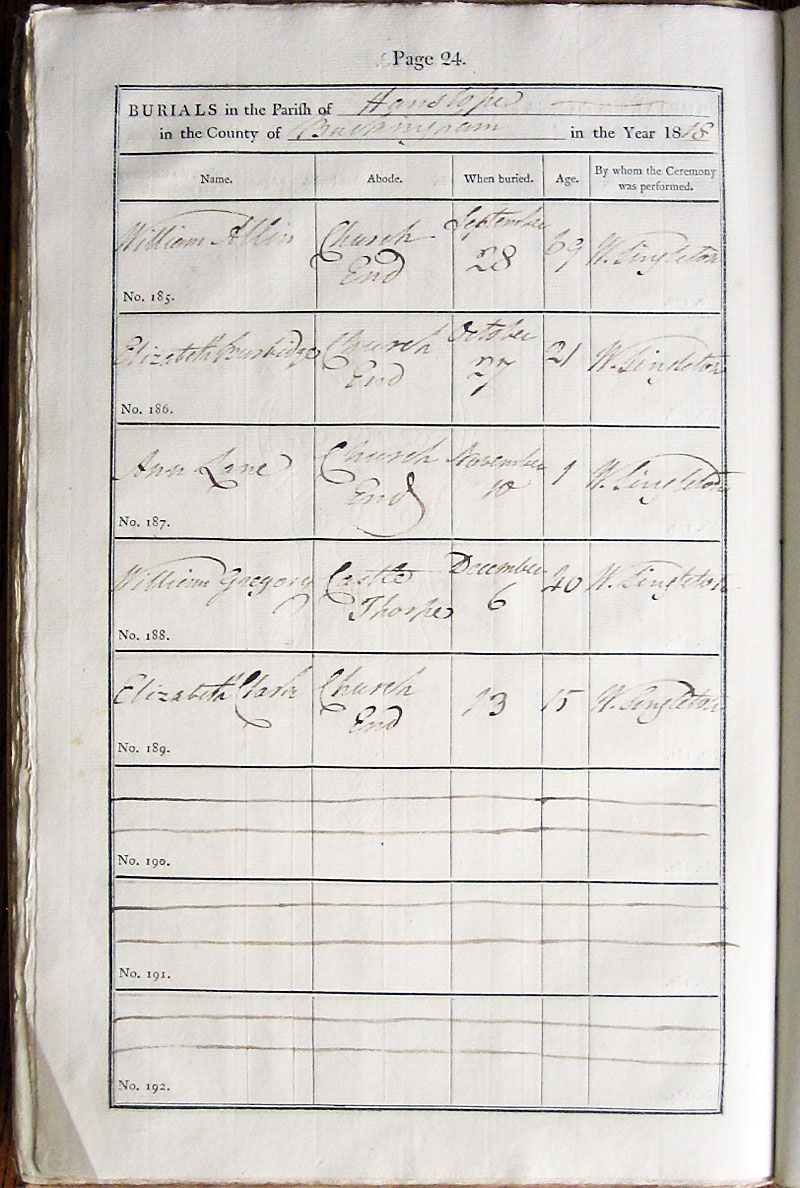 Page 24.
BURIALS in the Parish of Hanslope
in the County of Buckingham in the Year 1818
Name. Abode. When buried. Age. By whom the Ceremony
was performed.
William Allin Church End September 28 69 W. Singleton
No. 185.
Elizabeth Burbidge Church End October 27 21 W. Singleton
No. 186.
Ann Lane Church End November 10 1 W. Singleton
No. 187.
William Gregory Castle Thorpe December 6 40 W. Singleton
No. 188.
Elizabeth Clark Church End 13 15 W. Singleton
No. 189.
No. 190.
No. 191.
No. 192.